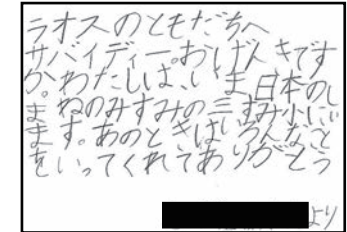 ラオスのともだちへ
サバイディー。おげんきです
か。わたしは、いま、日本のし
まねのみすみの三すみ小にい
ます。あのときはいろんなこと
をいってくれてありがとう
より